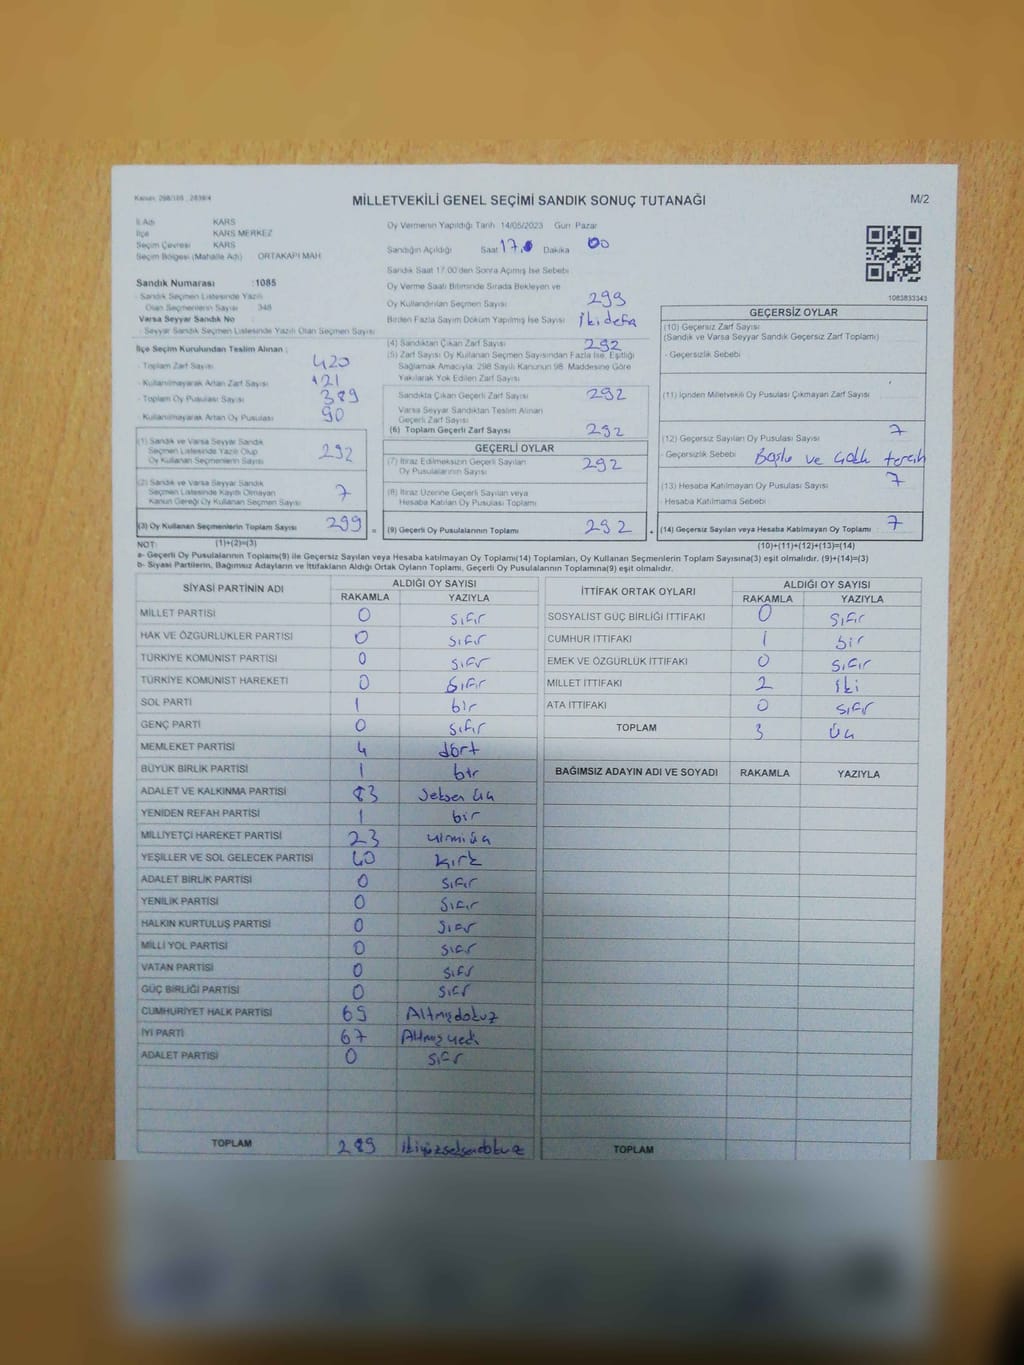 Kanun: 298/105 , 2839/4
MİLLETVEKİLİ GENEL SEÇİMİ SANDIK SONUÇ TUTANAĞI
M/2
İl Adı KARS
İlçe KARS MERKEZ
Seçim Çevresi KARS
Seçim Bölgesi (Mahalle Adı) ORTAKAPI MAH
Sandık Numarası :1085
Sandık Seçmen Listesinde Yazılı
Olan Seçmenlerin Sayısı 348
Varsa Seyyar Sandık No
Seyyar Sandık Seçmen Listesinde Yazılı Olan Seçmen Sayısı
Oy Vermenin Yapıldığı Tarih 14/05/2023 Gün Pazar
Sandığın Açıldığı Saat 17 Dakika 00
Sandık Saat 17.00'den Sonra Açılmış İse Sebebi
Oy Verme Saati Bitiminde Sırada Bekleyen ve
Oy Kullandırılan Seçmen Sayısı 299
Birden Fazla Sayım Döküm Yapılmış İse Sayısı iki defa
1083833343
İlçe Seçim Kurulundan Teslim Alınan :
Toplam Zarf Sayısı 420
Kullanılmayarak Artan Zarf Sayısı 121
Toplam Oy Pusulası Sayısı 389
Kullanılmayarak Artan Oy Pusulası 90
(1) Sandık ve Varsa Seyyar Sandık
Seçmen Listesinde Yazılı Olup
Oy Kullanan Seçmenlerin Sayısı 292
(2) Sandık ve Varsa Seyyar Sandık
Seçmen Listesinde Kayıtlı Olmayan
Kanun Gereği Oy Kullanan Seçmen Sayısı 7
(3) Oy Kullanan Seçmenlerin Toplam Sayısı 299 =
(4) Sandıktan Çıkan Zarf Sayısı 292
(5) Zarf Sayısı Oy Kullanan Seçmen Sayısından Fazla İse, Eşitliği
Sağlamak Amacıyla 298 Sayılı Kanunun 98. Maddesine Göre
Yakılarak Yok Edilen Zarf Sayısı
Sandıkta Çıkan Geçerli Zarf Sayısı 292
Varsa Seyyar Sandıktan Teslim Alınan
Geçerli Zarf Sayısı
(6) Toplam Geçerli Zarf Sayısı 292
GEÇERLİ OYLAR
(7) İtiraz Edilmeksizin Geçerli Sayılan
Oy Pusulalarının Sayısı 292
(8) İtiraz Üzerine Geçerli Sayılan veya
Hesaba Katılan Oy Pusulası Toplamı
(9) Geçerli Oy Pusulalarının Toplamı 292 +
GEÇERSİZ OYLAR
(10) Geçersiz Zarf Sayısı
(Sandık ve Varsa Seyyar Sandık Geçersiz Zarf Toplamı)
- Geçersizlik Sebebi
(11) İçinden Milletvekili Oy Pusulası Çıkmayan Zarf Sayısı
(12) Geçersiz Sayılan Oy Pusulası Sayısı 7
- Geçersizlik Sebebi ve tercih
(13) Hesaba Katılmayan Oy Pusulası Sayısı 7
Hesaba Katılmama Sebebi
(14) Geçersiz Sayılan veya Hesaba Katılmayan Oy Toplamı 7
NOT: (1)+(2)=(3) (10)+(11)+(12)+(13)=(14)
a- Geçerli Oy Pusulalarının Toplamı(9) ile Geçersiz Sayılan veya Hesaba katılmayan Oy Toplamı(14) Toplamları, Oy Kullanan Seçmenlerin Toplam Sayısına(3) eşit olmalıdır. (9)+(14)=(3)
b- Siyasi Partilerin, Bağımsız Adayların ve İttifakların Aldığı Ortak Oyların Toplamı, Geçerli Oy Pusulalarının Toplamına(9) eşit olmalıdır.
SİYASİ PARTİNİN ADI ALDIĞI OY SAYISI
RAKAMLA YAZIYLA
MİLLET PARTİSİ 0 sıfır
HAK VE ÖZGÜRLÜKLER PARTİSİ 0 sıfır
TÜRKİYE KOMÜNİST PARTİSİ 0 sıfır
TÜRKİYE KOMÜNİST HAREKETİ 0 sıfır
SOL PARTİ 1 bir
GENÇ PARTİ 0 sıfır
MEMLEKET PARTİSİ 4 dört
BÜYÜK BİRLİK PARTİSİ 1 bir
ADALET VE KALKINMA PARTİSİ 83 seksen üç
YENİDEN REFAH PARTİSİ 1 bir
MİLLİYETÇİ HAREKET PARTİSİ 23 yirmi üç
YEŞİLLER VE SOL GELECEK PARTİSİ 40 kırk
ADALET BİRLİK PARTİSİ 0 sıfır
YENİLİK PARTİSİ 0 sıfır
HALKIN KURTULUŞ PARTİSİ 0 sıfır
MİLLİ YOL PARTİSİ 0 sıfır
VATAN PARTİSİ 0 sıfır
GÜÇ BİRLİĞİ PARTİSİ 0 sıfır
CUMHURİYET HALK PARTİSİ 69 Altmışdokuz
İYİ PARTİ 67 Altmış yedi
ADALET PARTİSİ 0 sıfır
TOPLAM 289 ikiyüzseksendokuz
İTTİFAK ORTAK OYLARI ALDIĞI OY SAYISI
RAKAMLA YAZIYLA
SOSYALİST GÜÇ BİRLİĞİ İTTİFAKI 0 sıfır
CUMHUR İTTİFAKI 1 bir
EMEK VE ÖZGÜRLÜK İTTİFAKI 0 sıfır
MİLLET İTTİFAKI 2 iki
ATA İTTİFAKI 0 sıfır
TOPLAM 3 üç
BAĞIMSIZ ADAYIN ADI VE SOYADI RAKAMLA YAZIYLA
TOPLAM